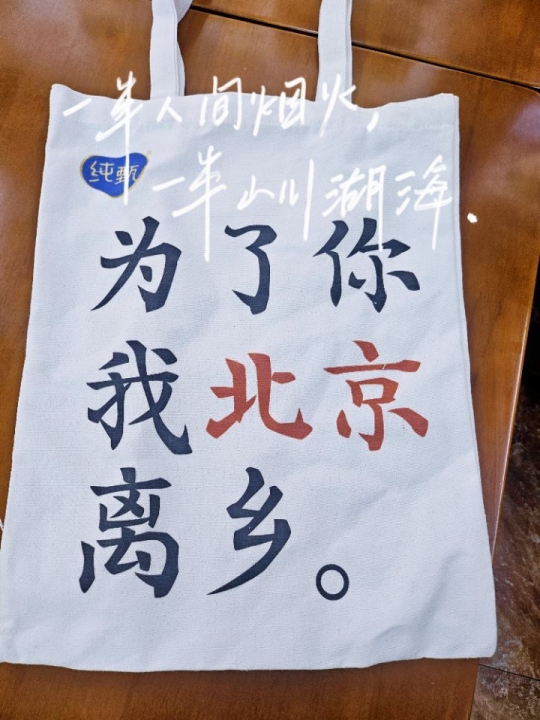 一半人间烟火,
纯甄
一半山川湖海.
为了你
我北京
离乡。